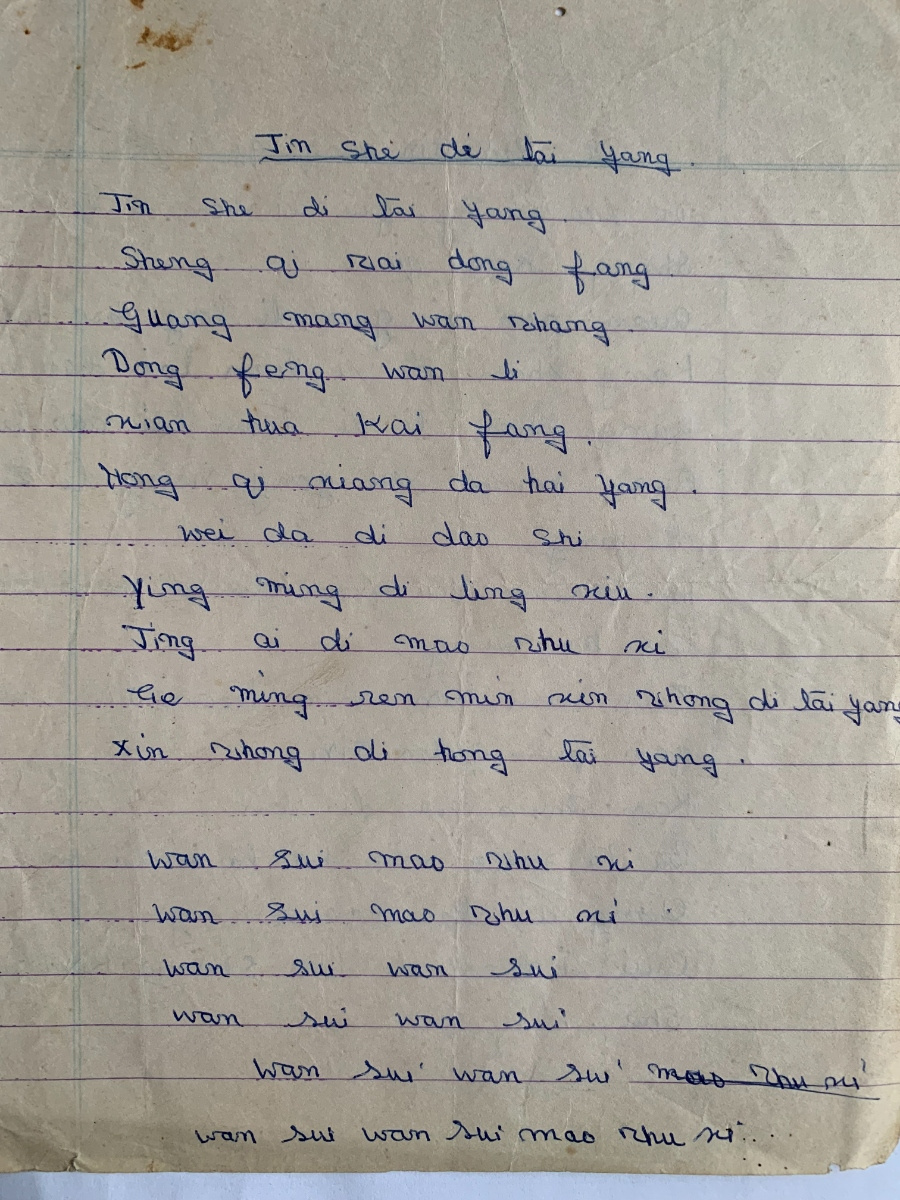 Jin she di tāi yang.
Jin she di tāi yang.
Sheng qi zai dong fang.
Guang mang wan zhang.
Dong feng wan li
xian hua kai fang.
Hong qi xiang da hai yang.
wei da di dao shi
Ying ming di ling xiu.
Jing ai di mao zhu xi
Ge ming ren min xin zhong di tāi yang
Xin zhong di hong tāi yang.
wan sui mao zhu xi
wan sui mao zhu xi
wan sui wan sui
wan sui wan sui
wan sui wan sui mao zhu xi
wan sui wan sui mao zhu xi....